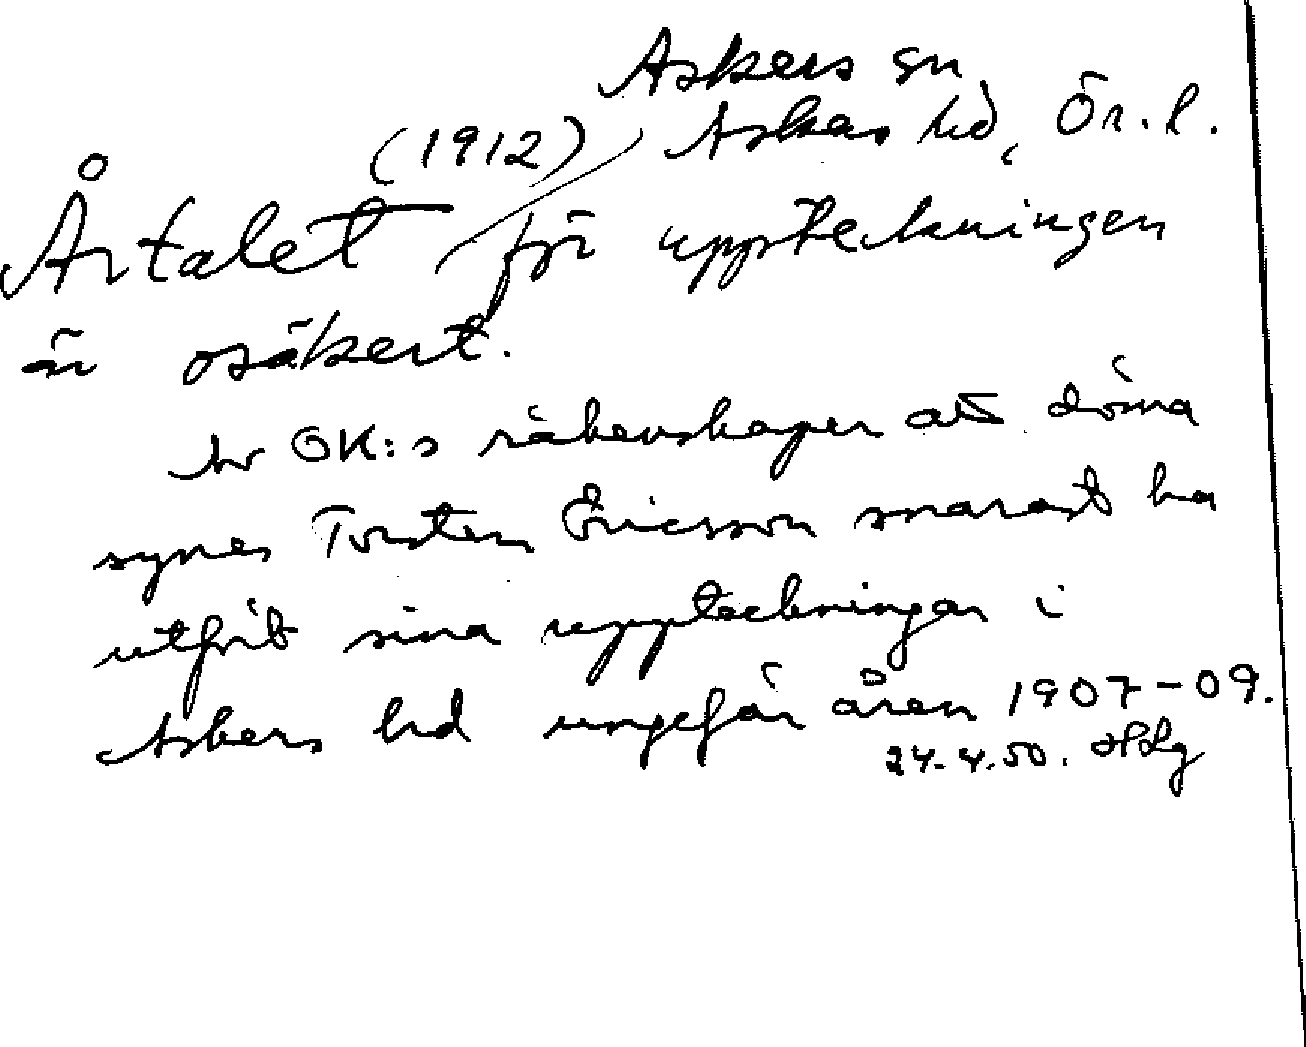 Askers sn
(1912) Askers hd, Ör. l.
Årtalet för uppteckningen
är osäkert.
Av OK:s räkenskaper att döma
synes Torsten Ericsson snarast ha
utfört sina uppteckningar i
Askers hd ungefär åren 1907-09.
24.4.50.